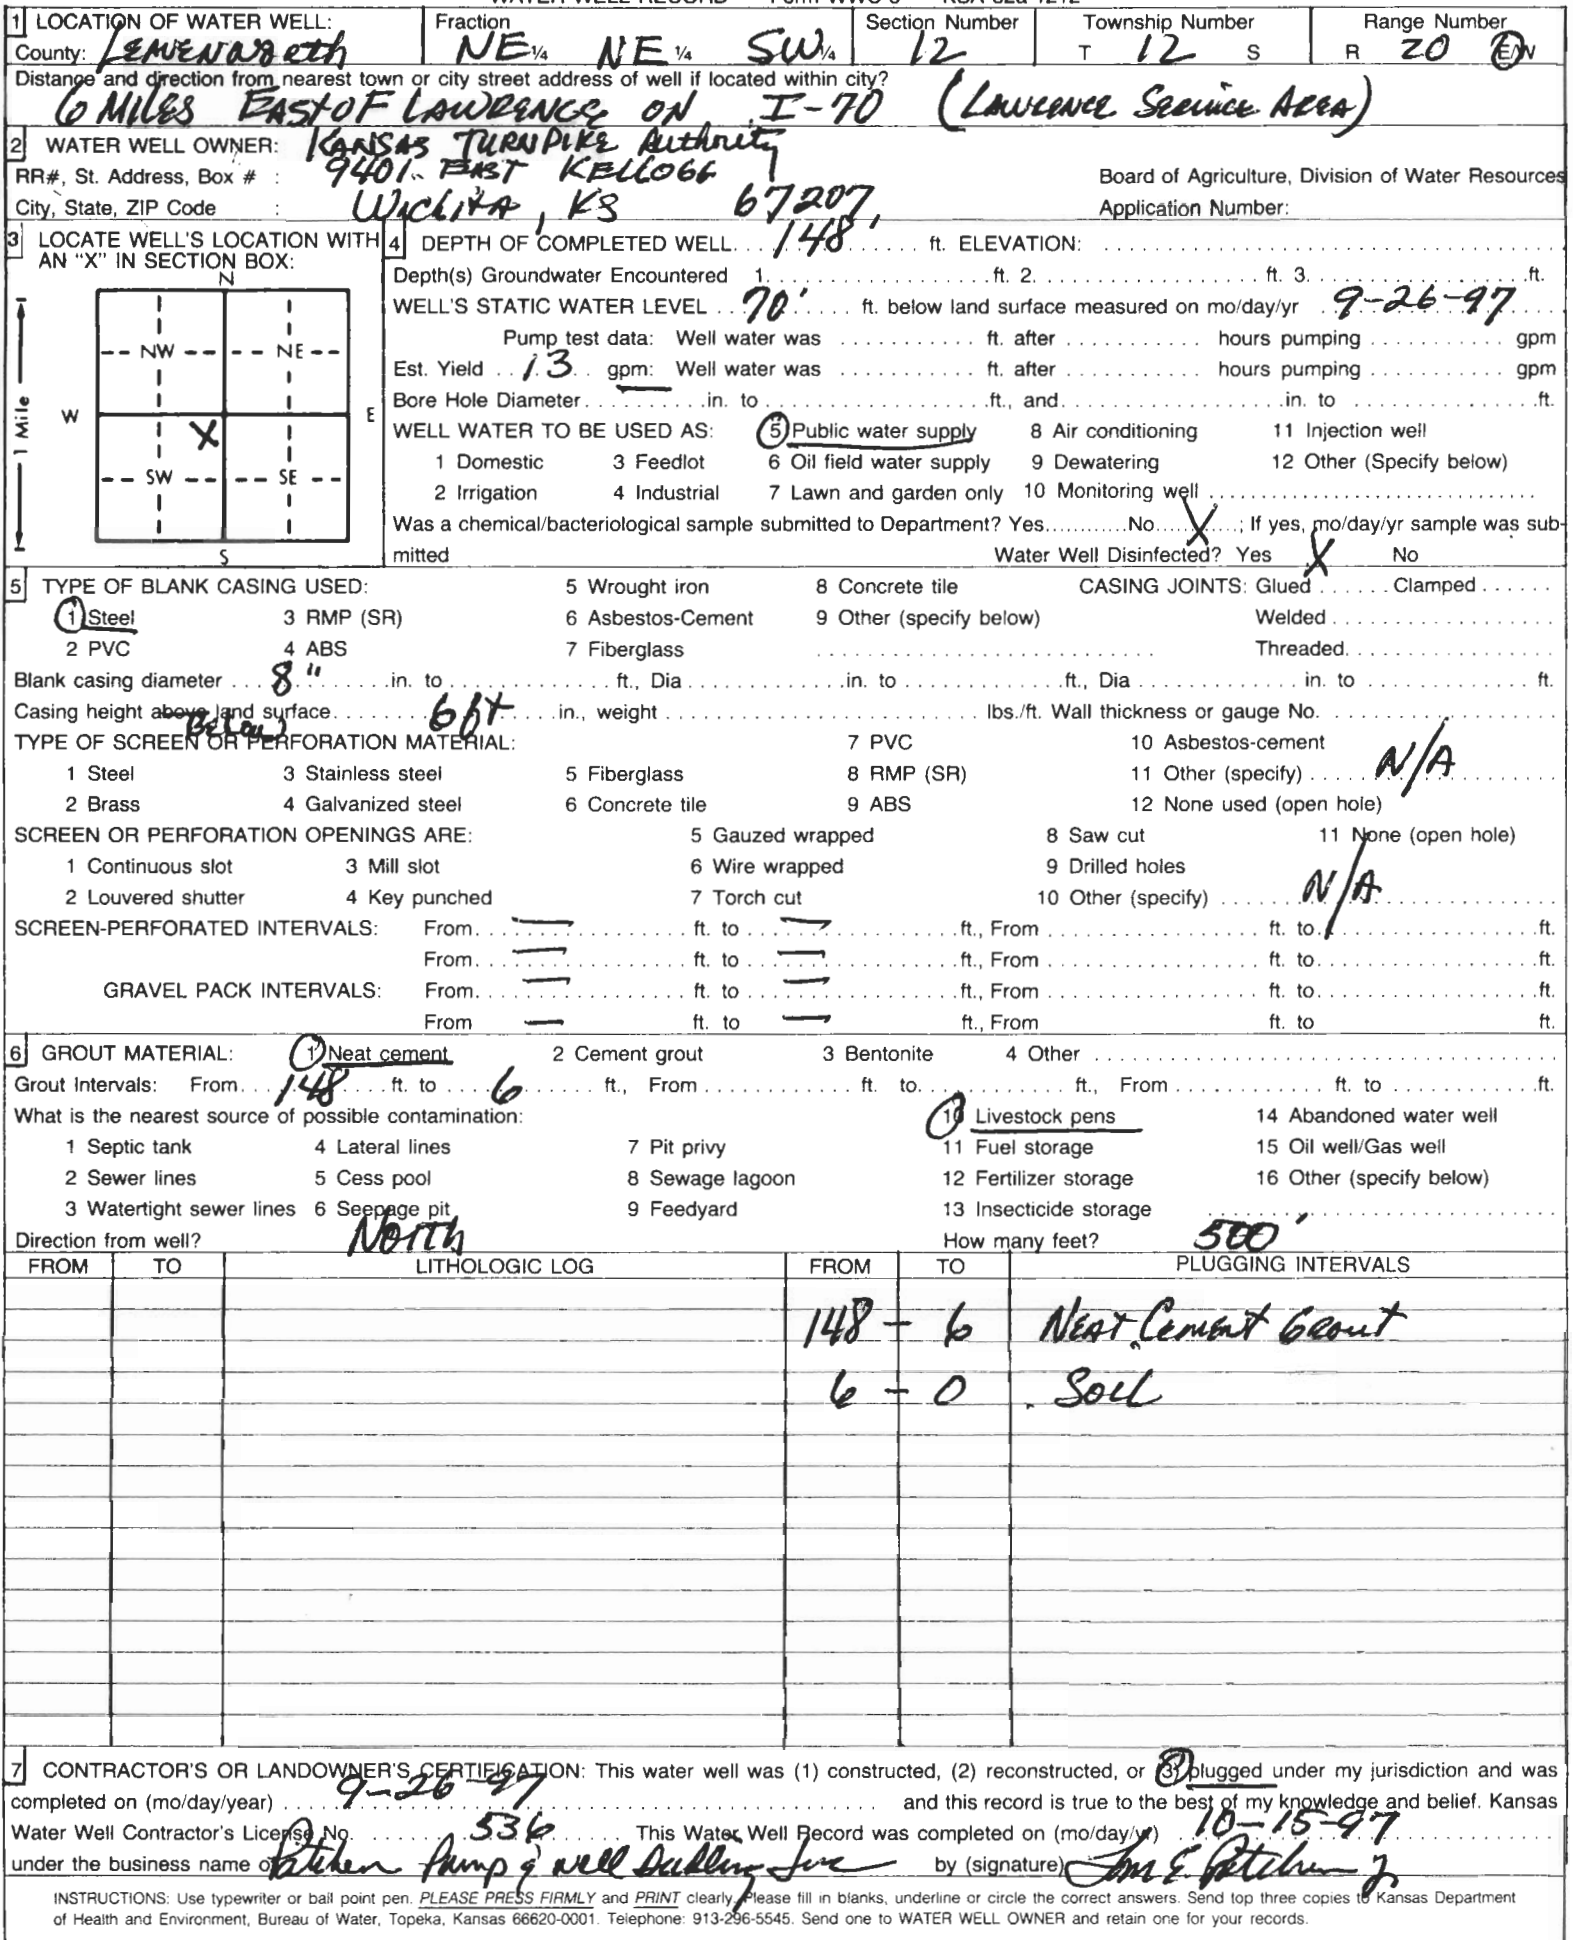 WATER WELL RECORD Form WWC-5 KSA 82a-1212
1 LOCATION OF WATER WELL: Fraction Section Number Township Number Range Number
County: Leavenworth NE ¼ NE ¼ SW ¼ 12 T 12 S R 20 E/W
Distance and direction from nearest town or city street address of well if located within city?
6 MILES EAST OF LAWRENCE ON I-70 (LAWRENCE SERVICE AREA)
2 WATER WELL OWNER: KANSAS TURNPIKE Authority
RR#, St. Address, Box # : 9401 EAST KELLOGG Board of Agriculture, Division of Water Resources
City, State, ZIP Code : Wichita, KS 67207 Application Number:
3 LOCATE WELL'S LOCATION WITH AN "X" IN SECTION BOX:
N
NW NE
W E
X
SW SE
S
1 Mile
4 DEPTH OF COMPLETED WELL. 148' ft. ELEVATION:
Depth(s) Groundwater Encountered 1. ft. 2. ft. 3. ft.
WELL'S STATIC WATER LEVEL 70' ft. below land surface measured on mo/day/yr 9-26-97
Pump test data: Well water was ft. after hours pumping gpm
Est. Yield 13 gpm: Well water was ft. after hours pumping gpm
Bore Hole Diameter in. to ft., and in. to ft.
WELL WATER TO BE USED AS: 5 Public water supply 8 Air conditioning 11 Injection well
1 Domestic 3 Feedlot 6 Oil field water supply 9 Dewatering 12 Other (Specify below)
2 Irrigation 4 Industrial 7 Lawn and garden only 10 Monitoring well
Was a chemical/bacteriological sample submitted to Department? Yes No X ; If yes, mo/day/yr sample was sub-
mitted Water Well Disinfected? Yes X No
5 TYPE OF BLANK CASING USED: 5 Wrought iron 8 Concrete tile CASING JOINTS: Glued Clamped
1 Steel 3 RMP (SR) 6 Asbestos-Cement 9 Other (specify below) Welded
2 PVC 4 ABS 7 Fiberglass Threaded
Blank casing diameter 8" in. to ft., Dia in. to ft., Dia in. to ft.
Casing height above Below land surface 6 ft in., weight lbs./ft. Wall thickness or gauge No.
TYPE OF SCREEN OR PERFORATION MATERIAL: 7 PVC 10 Asbestos-cement
1 Steel 3 Stainless steel 5 Fiberglass 8 RMP (SR) 11 Other (specify) N/A
2 Brass 4 Galvanized steel 6 Concrete tile 9 ABS 12 None used (open hole)
SCREEN OR PERFORATION OPENINGS ARE: 5 Gauzed wrapped 8 Saw cut 11 None (open hole)
1 Continuous slot 3 Mill slot 6 Wire wrapped 9 Drilled holes
2 Louvered shutter 4 Key punched 7 Torch cut 10 Other (specify) N/A
SCREEN-PERFORATED INTERVALS: From — ft. to — ft., From ft. to ft.
From — ft. to — ft., From ft. to ft.
GRAVEL PACK INTERVALS: From — ft. to — ft., From ft. to ft.
From — ft. to — ft., From ft. to ft.
6 GROUT MATERIAL: 1 Neat cement 2 Cement grout 3 Bentonite 4 Other
Grout Intervals: From 148 ft. to 6 ft., From ft. to ft., From ft. to ft.
What is the nearest source of possible contamination: 10 Livestock pens 14 Abandoned water well
1 Septic tank 4 Lateral lines 7 Pit privy 11 Fuel storage 15 Oil well/Gas well
2 Sewer lines 5 Cess pool 8 Sewage lagoon 12 Fertilizer storage 16 Other (specify below)
3 Watertight sewer lines 6 Seepage pit 9 Feedyard 13 Insecticide storage
Direction from well? North How many feet? 500'
FROM TO LITHOLOGIC LOG FROM TO PLUGGING INTERVALS
148 - 6 NEAT CEMENT Grout
6 - 0 Soil
7 CONTRACTOR'S OR LANDOWNER'S CERTIFICATION: This water well was (1) constructed, (2) reconstructed, or (3) plugged under my jurisdiction and was
completed on (mo/day/year) 9-26-97 and this record is true to the best of my knowledge and belief. Kansas
Water Well Contractor's License No. 536 This Water Well Record was completed on (mo/day/yr) 10-15-97
under the business name of Patchen Pump & Well Drilling Inc by (signature) Tom E. Patchen Jr
INSTRUCTIONS: Use typewriter or ball point pen. PLEASE PRESS FIRMLY and PRINT clearly. Please fill in blanks, underline or circle the correct answers. Send top three copies to Kansas Department
of Health and Environment, Bureau of Water, Topeka, Kansas 66620-0001. Telephone: 913-296-5545. Send one to WATER WELL OWNER and retain one for your records.